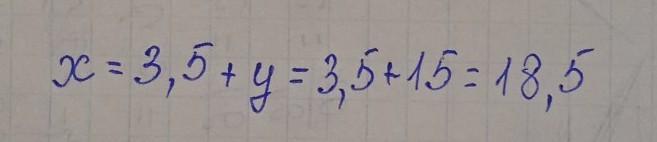 x = 3,5 + y = 3,5 + 15 = 18,5